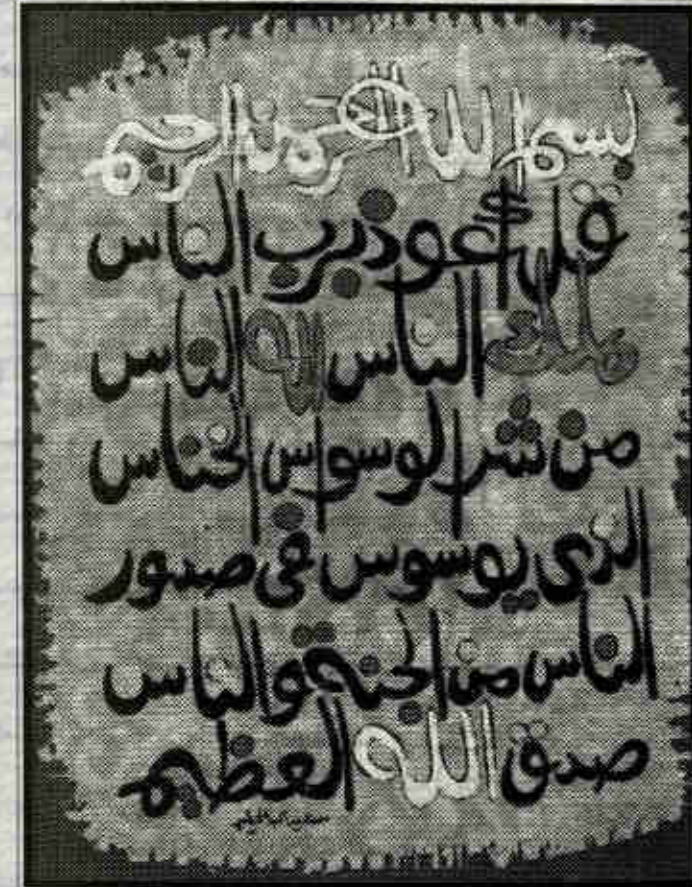 بسم الله الرحمن الرحيم
قل أعوذ برب الناس
ملك الناس إله الناس
من شر الوسواس الخناس
الذى يوسوس فى صدور
الناس من الجنة والناس
صدق الله العظيم